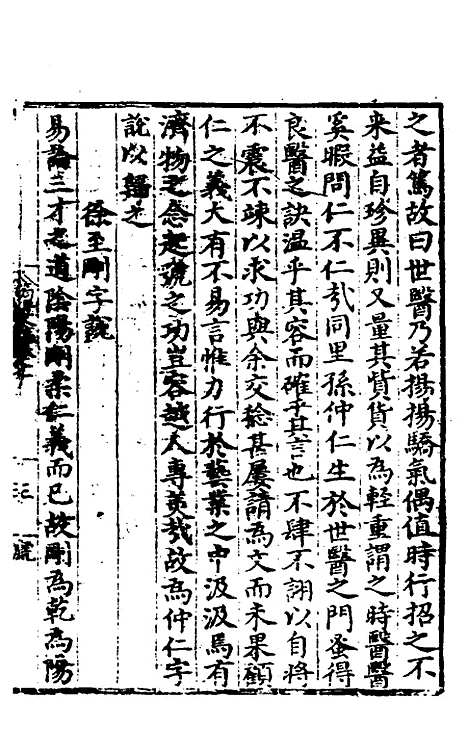 之者篤故曰世醫乃若揚揚驕氣偶值時行招之不
来益自珍異則又量其貲貨以為輕重謂之時醫醫
奚暇問仁不仁㢤同里孫仲仁生於世醫之門蚤得
良醫之訣温乎其容而確乎其言也不肆不詡以自將
不震不竦以求功與余交稔甚屢請為文而未果顧
仁之義大有不易言惟力行於藝業之中汲汲焉有
濟物之念起號之功豈容越人專美哉故為仲仁字
說以
徐至剛字說
易論三才之道陰陽剛柔仁義而已故剛為乾為陽